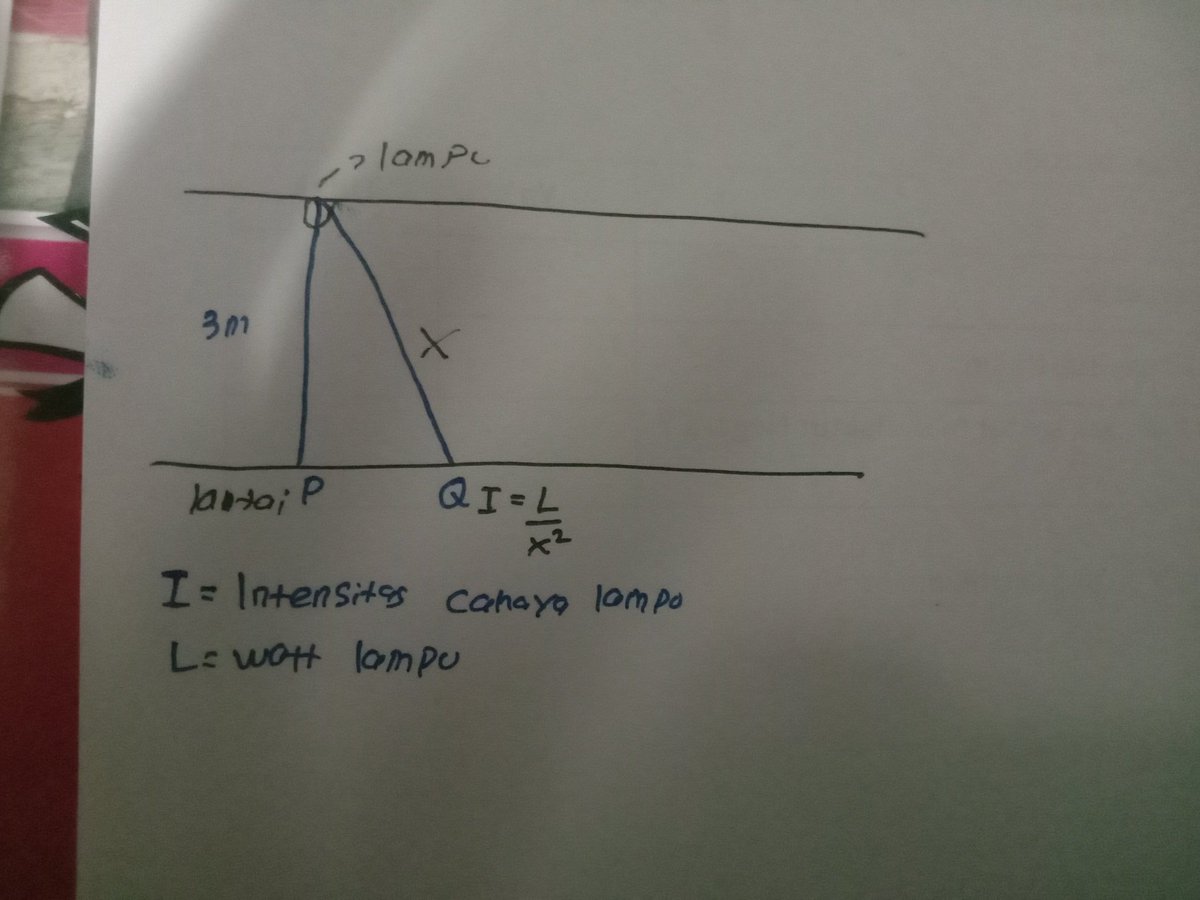 lampu
3m
X
lantai P
Q I = L/x²
I = Intensitas cahaya lampu
L = watt lampu